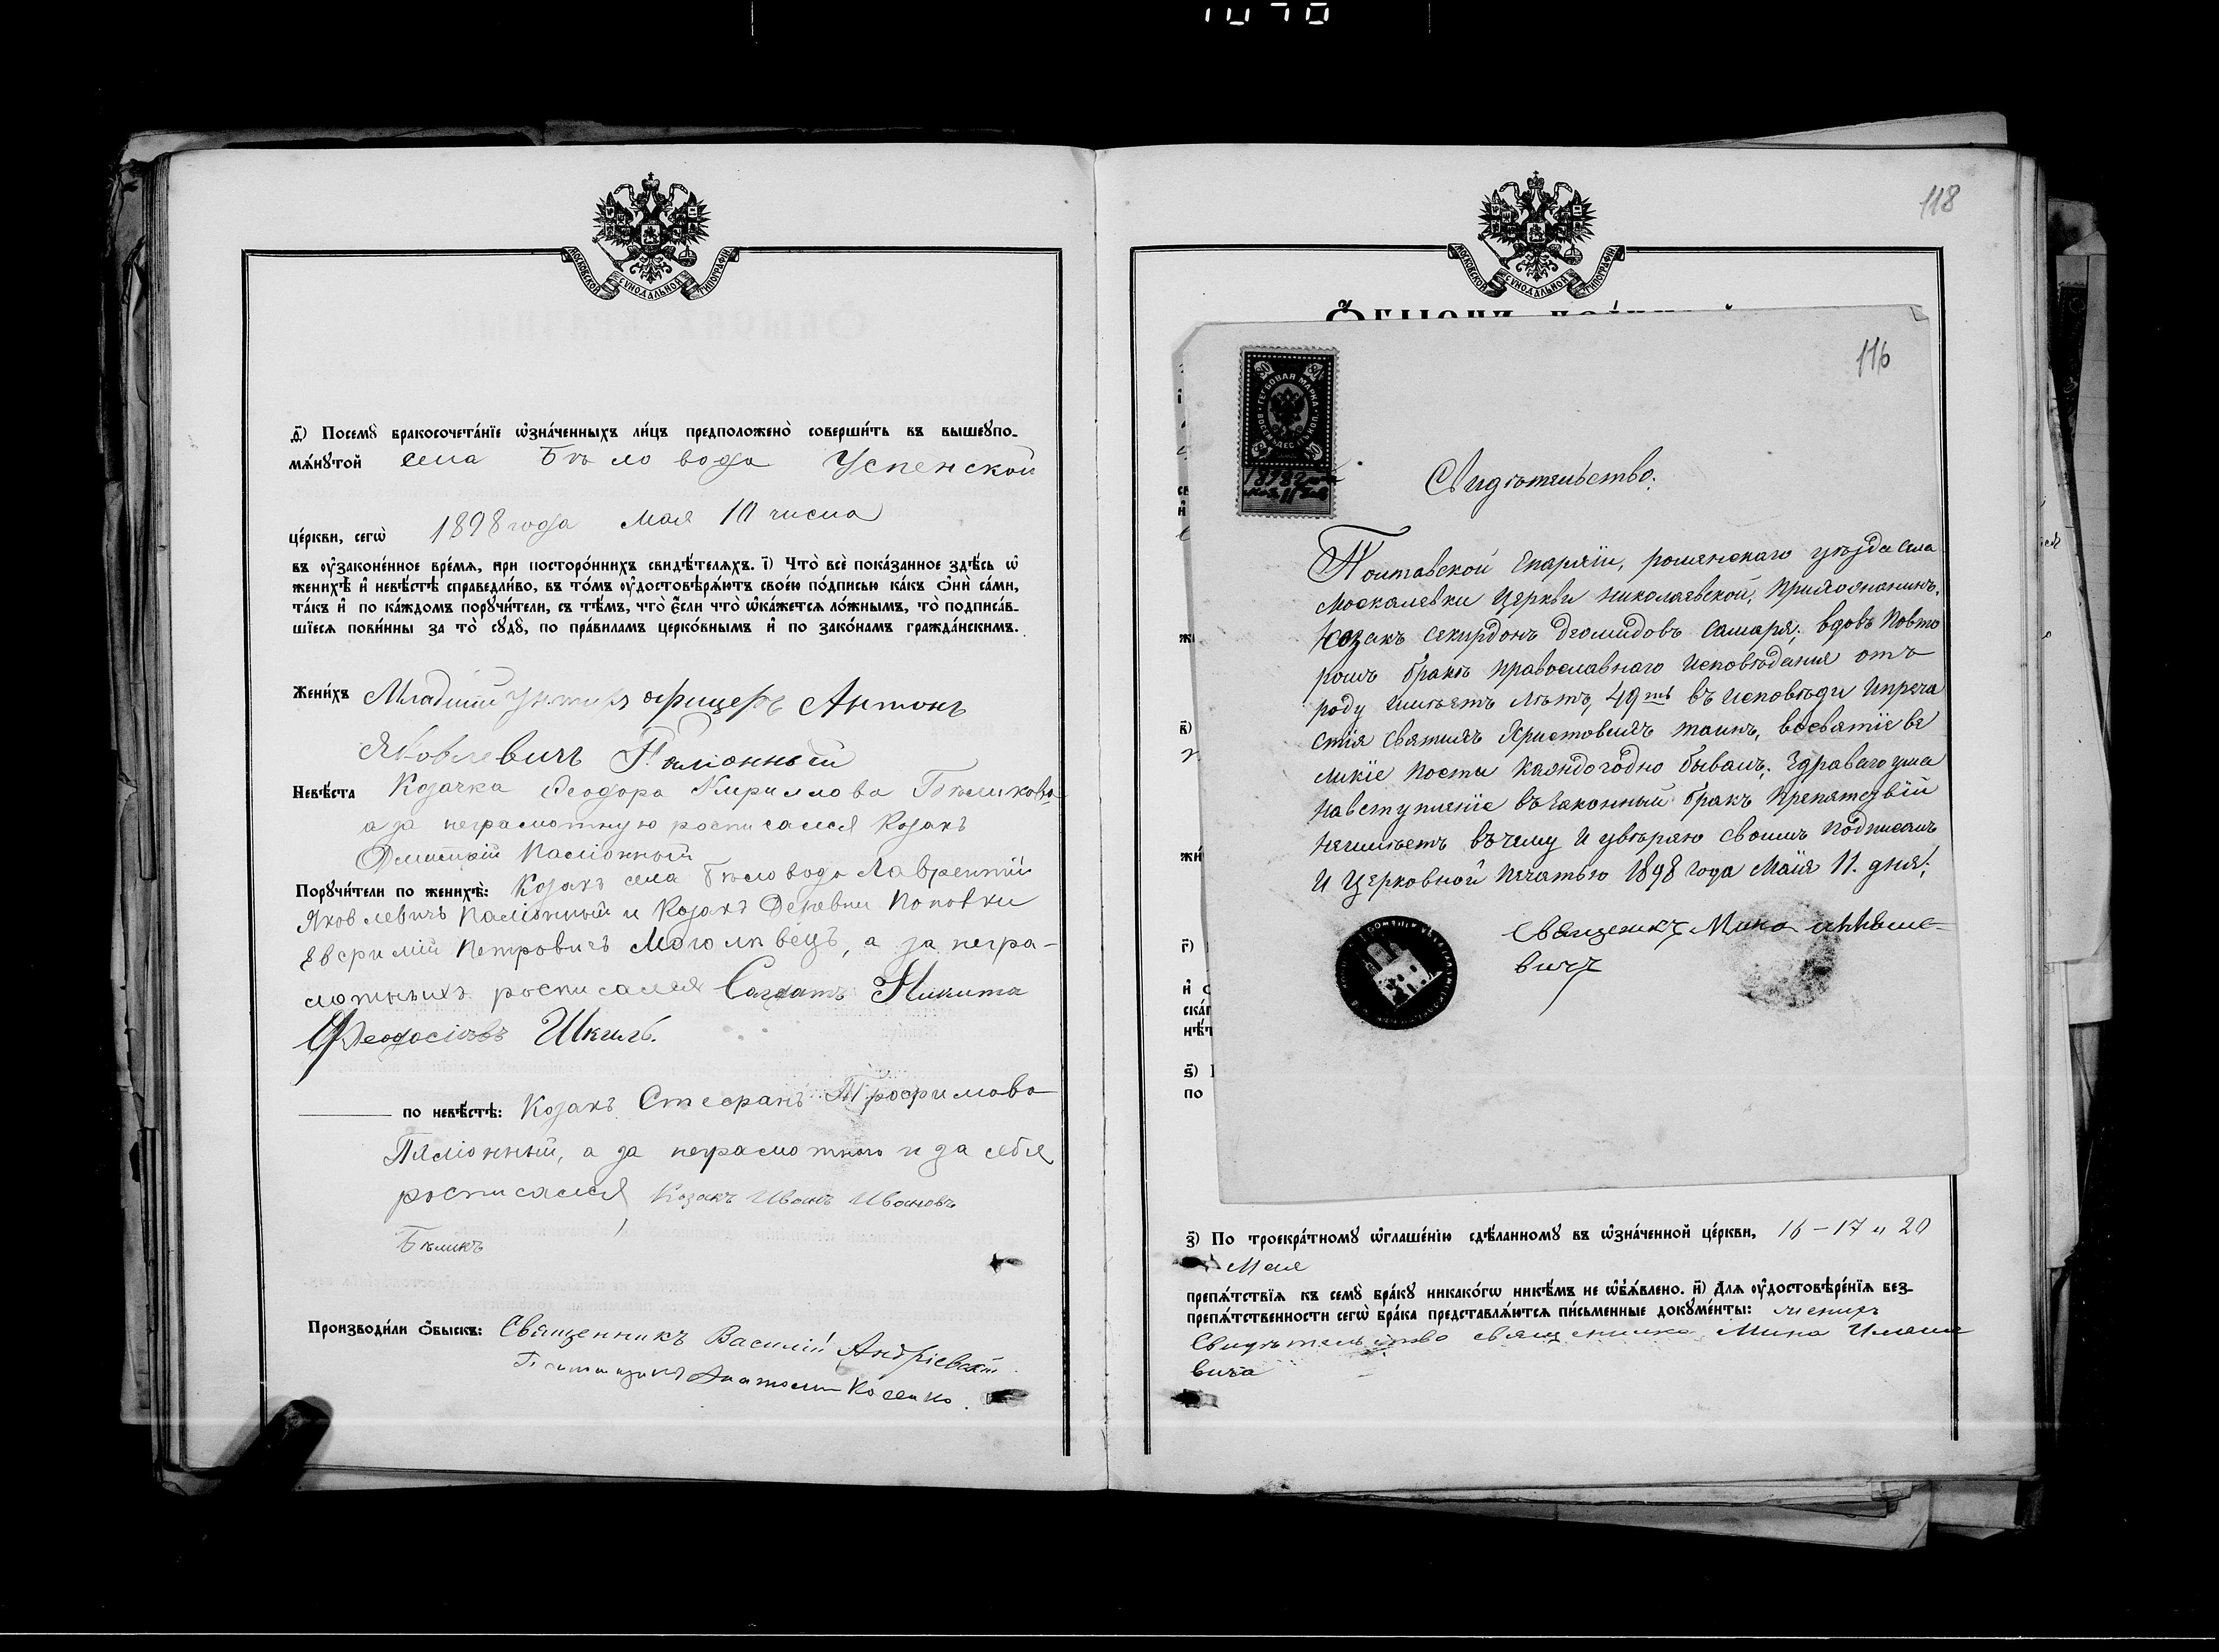 МОСКОВСКОЙ СѴНОДАЛЬНОЙ ТИПОГРАФІИ
д҃) Посемꙋ бракосочета́нїе ѡ҆зна́ченныхъ ли́цъ предположено̀ соверши́ть въ вышеꙋпо-
мѧ́нꙋтой села Бѣловода Успенской
це́ркви, сегѡ̀ 1898 года Мая 10 числа
въ ᲂу҆зако́ненное вре́мѧ, при посторо́ннихъ свидѣ́телѧхъ. і҃) Что̀ всѐ пока́занное здѣ́сь ѡ҆
женихѣ̀ и҆ невѣ́стѣ справедли́во, въ то́мъ ᲂу҆достовѣрѧ́ютъ свое́ю по́дписью ка́къ ѻ҆нѝ са́ми,
та́къ и҆ по ка́ждомъ порꙋчи́тели, съ тѣ́мъ, что̀ є҆́сли что̀ ѡ҆ка́жетсѧ ло́жнымъ, то̀ подписа́в-
шїесѧ пови́нны за то̀ сꙋдꙋ̀, по пра́виламъ церко́внымъ и҆ по зако́намъ гражда́нскимъ.
Жени́хъ Младшій унтеръ офицеръ Антонъ
Яковлевичъ Паліонный
Невѣ́ста Козачка Феодора Кириллова Бѣликова
а за неграмотную росписался Козакъ
Дмитрій Паліонный
Порꙋчи́тели по женихѣ̀: Козакъ села Бѣловода Лаврентій
Яковлевичъ Паліонный и Козакъ Деревни Поповки
Евфимій Петровичъ Моголивецъ, а за негра-
мотныхъ росписался Солдатъ Никита
Феодосіевъ Шкиль.
по невѣ́стѣ: Козакъ Стефанъ Трофимова
Паліонный, а за неграмотного и за себя
росписался Козакъ Иванъ Ивановъ
Бѣликъ
Производи́ли ѻ҆́быскъ: Священникъ Василій Андріевскій
Псаломщикъ Анатолій Косенко.
118
МОСКОВСКОЙ СѴНОДАЛЬНОЙ ТИПОГРАФІИ
116
ГЕРБОВАЯ МАРКА
ВОСЕМЬДЕС ТЪ КОП.
80
1898 года
мая 11 дня
Свидѣтельство:
Полтавской Епархіи, роменскаго уѣзда села
Москалевки Церкви Николаевской, Прихожанинъ,
Козакъ Секирдонъ Деомидовъ Самаря, вдовъ Повто
ромъ бракѣ православнаго исповѣданія отъ
роду имѣетъ лѣтъ, 49ть въ исповѣди Ипреча
стія Святыхъ Христовыхъ таинъ, восвятіе ве
ликіе Посты каждогодно бываль, Здраваго ума
навступленіе въ законный бракъ Препятствій
неимѣетъ въ чему И увѣряю своимъ подписомъ
И Церковной печатью 1898 года Маія 11. дня:
Священикъ Мина
вичъ
з҃) По троекра́тномꙋ ѡ҆глаше́нїю сдѣ́ланномꙋ въ ѡ҆зна́ченной це́ркви, 16 – 17 и 20
Мая
препѧ́тствїѧ къ семꙋ̀ бра́кꙋ никако́гѡ никѣ́мъ не ѡ҆б̾ѧ́влено. и҃) Длѧ ᲂу҆достовѣре́нїѧ без-
препѧ́тственности сегѡ̀ бра́ка представлѧ́ютсѧ пи́сьменные докꙋме́нты:
Свидѣтельство священика Мина Иляше
вича